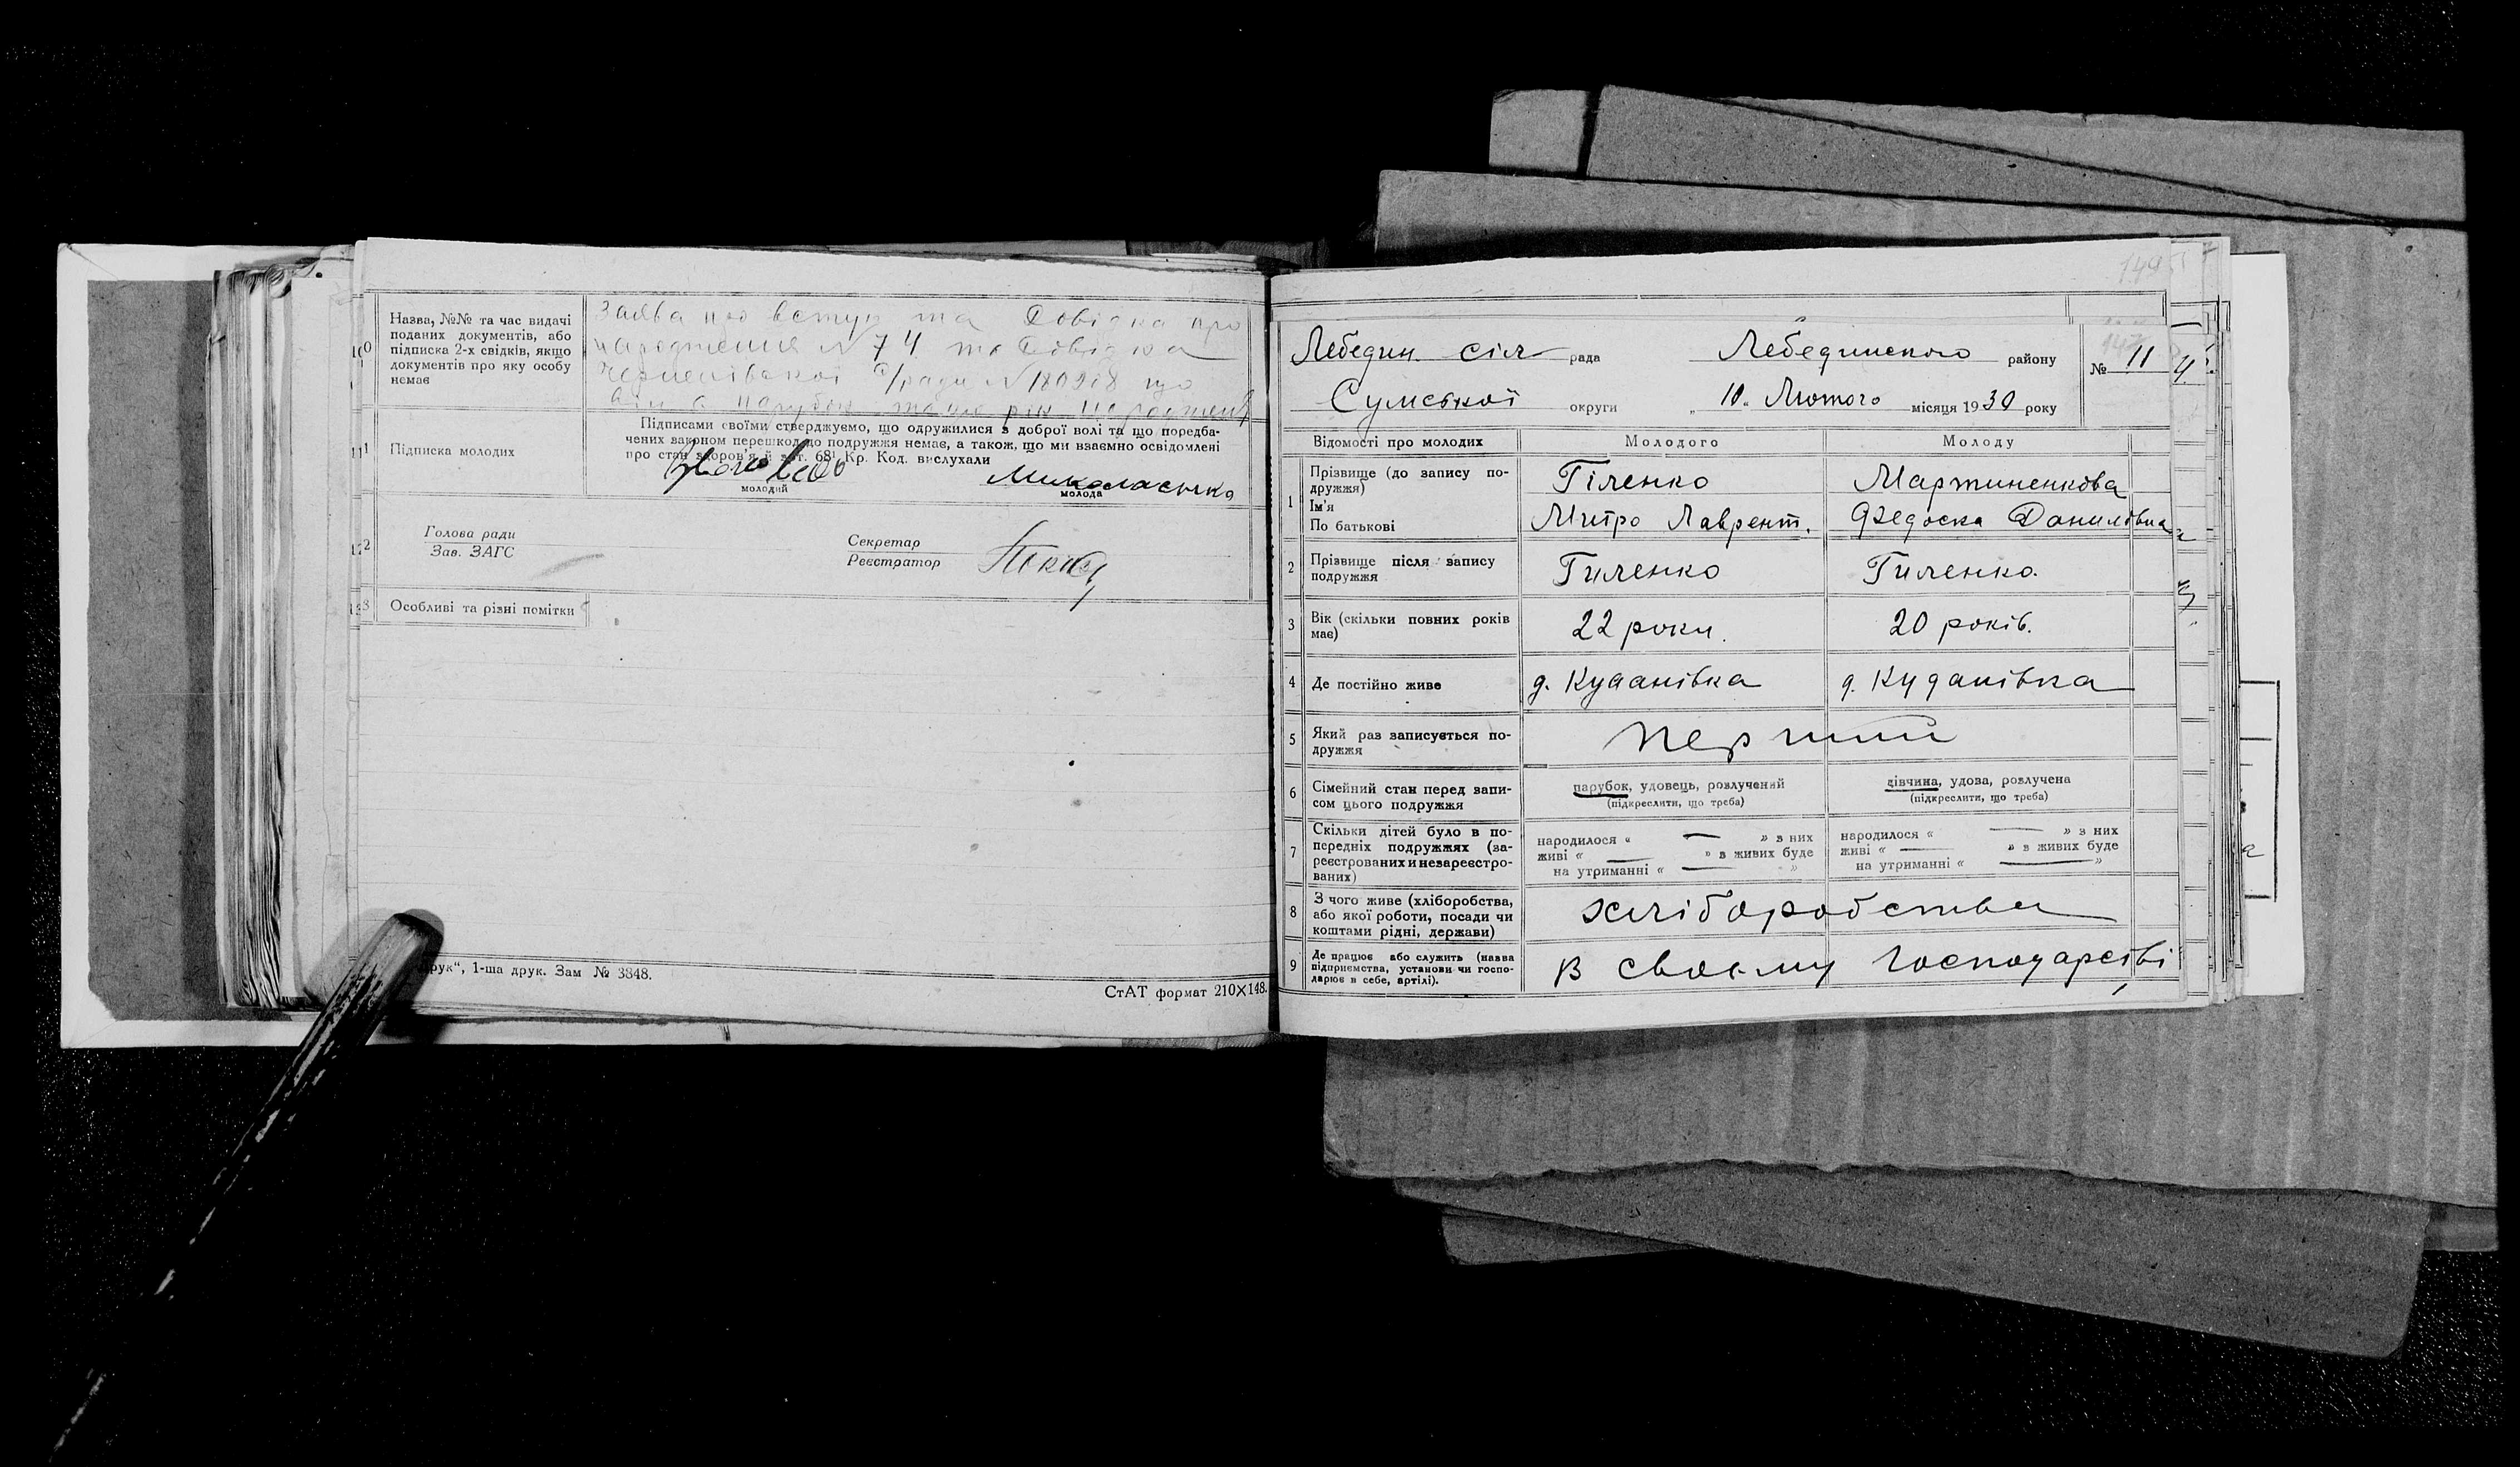 Назва, №№ та час видачі
поданих документів, або
підписка 2-х свідків, якщо
документів про яку особу
немає
Заява про вступ та Довідка про
народження N 74 та Довідка
с/ради N 180928 що
парубок
10
11
Підписка молодих
Підписами своїми стверджуємо, що одружилися з доброї волі та що поредба-
чених законом перешкод до подружжя немає, а також, що ми взаємно освідомлені
про стан здоров'я й арт. 68¹ Кр. Код. вислухали
молодий
молода
12
Голова ради
Зав. ЗАГС
Секретар
Реєстратор
13
Особливі та різні помітки
рук“, 1-ша друк. Зам № 3848.
СтАТ формат 210X148.
Лебедин. сіл рада Лебединского району
№ 11
Сумської округи „ 10 „ Лютого місяця 1930 року
Відомості про молодих Молодого Молоду
1 Прізвище (до запису по-
дружжя)
Ім'я
По батькові
Гіленко Мартиненкова
Митро Лаврент. Федоска Даниловна
2 Прізвище після запису
подружжя
Гиленко Гиленко.
3 Вік (скільки повних років
має)
22 роки. 20 років.
4 Де постійно живе
д. Куданівка д. Куданівка
5 Який раз записується по-
дружжя
перший
6 Сімейний стан перед запи-
сом цього подружжя
парубок, удовець, розлучений
(підкреслити, що треба)
дівчина, удова, розлучена
(підкреслити, що треба)
7 Скільки дітей було в по-
передніх подружжях (за-
реєстрованих и незареєстро-
ваних)
народилося « — » з них
живі « — » в живих буде
на утриманні « — »
народилося « — » з них
живі « — » в живих буде
на утриманні « — »
8 З чого живе (хліборобства,
або якої роботи, посади чи
коштами рідні, держави)
хліборобства
9 Де працює або служить (назва
підприємства, установи чи госпо-
дарює в себе, артілі).
В своєму господарстві